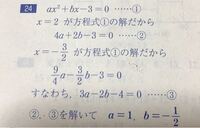 24 ax²+bx-3=0 ……①
x=2 が方程式①の解だから
4a+2b-3=0 ……②
x=-3/2 が方程式①の解だから
9/4a-3/2b-3=0
すなわち, 3a-2b-4=0 ……③
②, ③を解いて a=1, b=-1/2